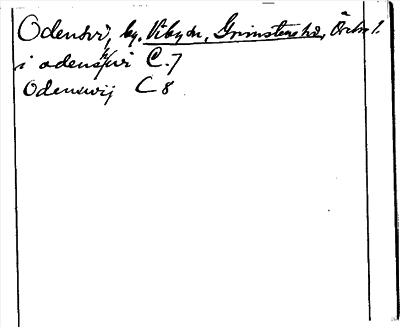 Odensvi, by, Viby sn, Grimstens hd, Örebro l.
i odens wi C. 7
Odenswij C 8